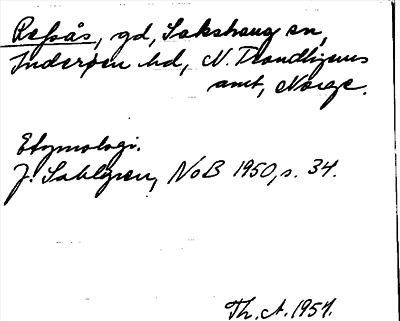 Refsås, gd, Sakshaug sn,
Inderøen hd, N. Trondhjems
amt, Norge.
Etymologi.
J. Sahlgren, NoB 1950, s. 34.
Th. A. 1951.